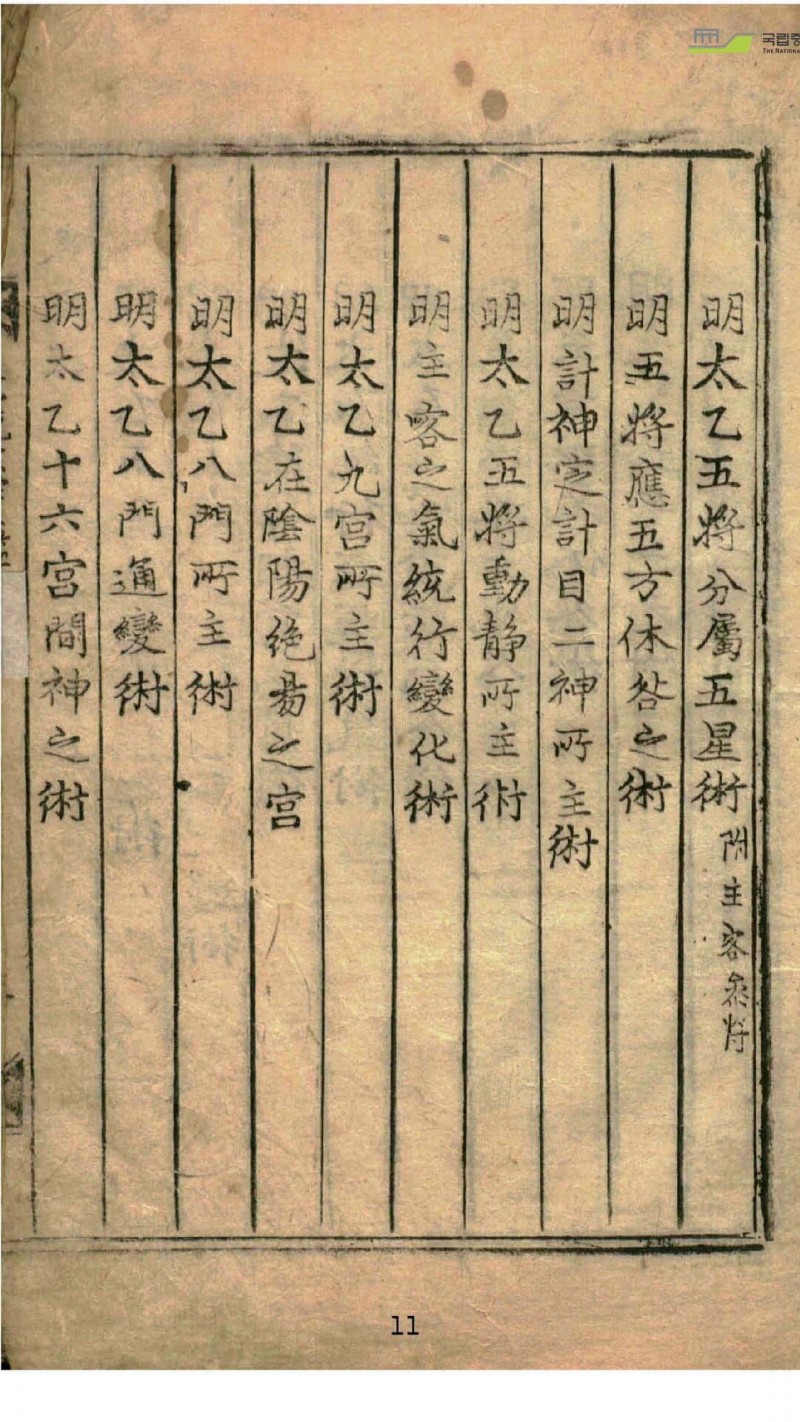 국립중
THE NATIONA
明太乙五將分屬五星術 附主客叅將
明五將應五方休咎之術
明計神定計目二神所主術
明太乙五將動静所主術
明主客之氣統行變化術
明太乙九宮所主術
明太乙在陰陽絶易之宮
明太乙八門所主術
明太乙八門通變術
明太乙十六宮間神之術
11